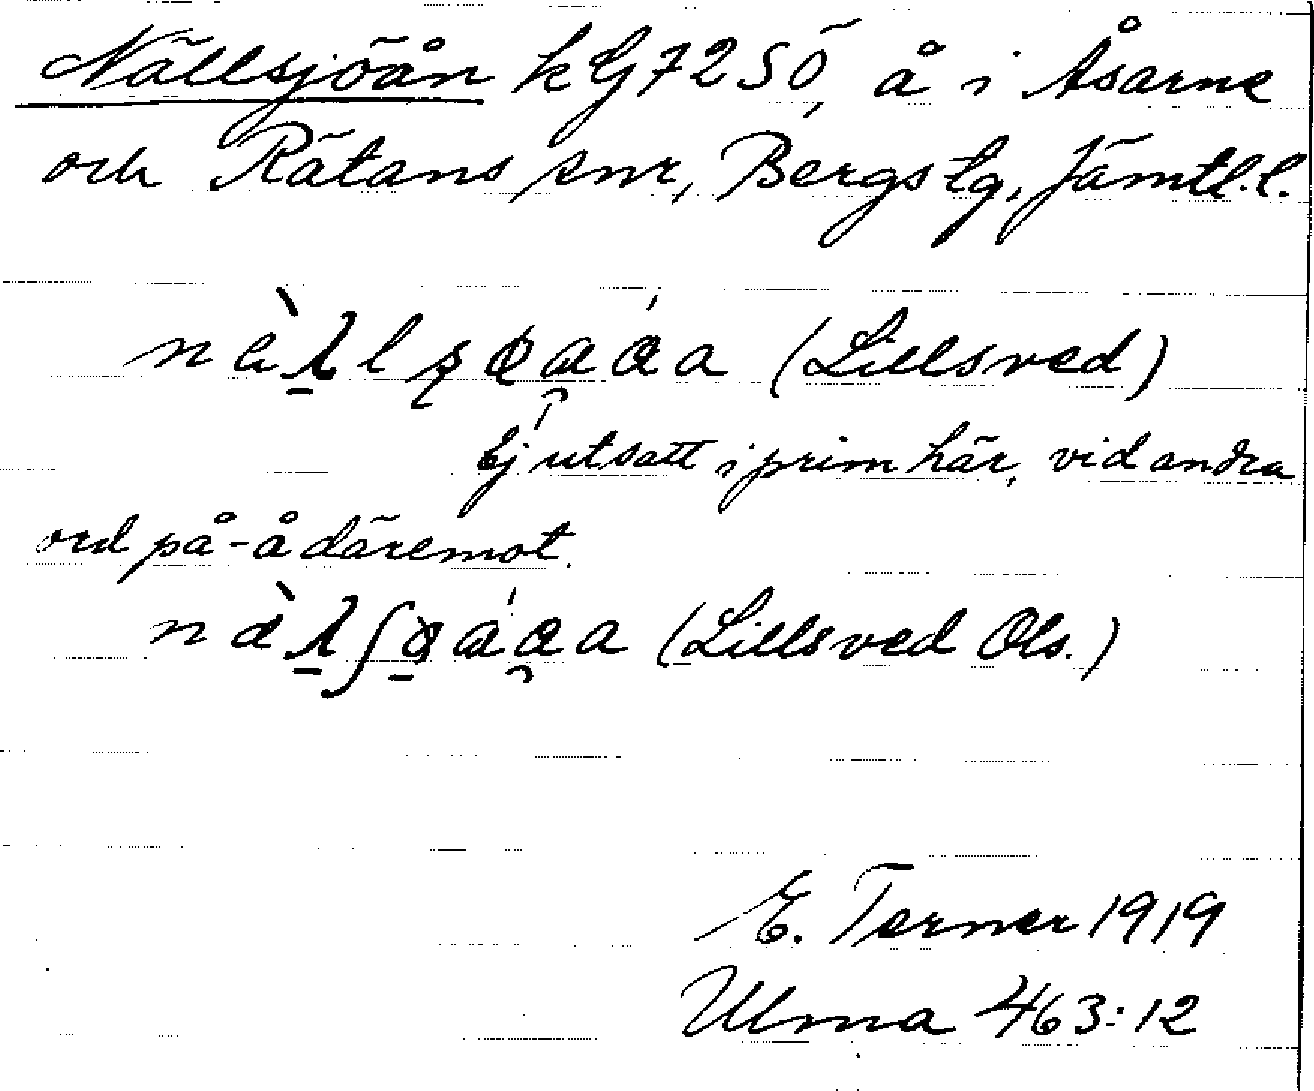 Nällsjöån kG7250, å i Åsarne
och Rätans snr, Bergs tg, Jämtl.l.
(Lillsved)
Ej utsatt i prim här, vid andra
ord på -å däremot.
(Lillsved Ols.)
E. Terner 1919
Ulma 463:12